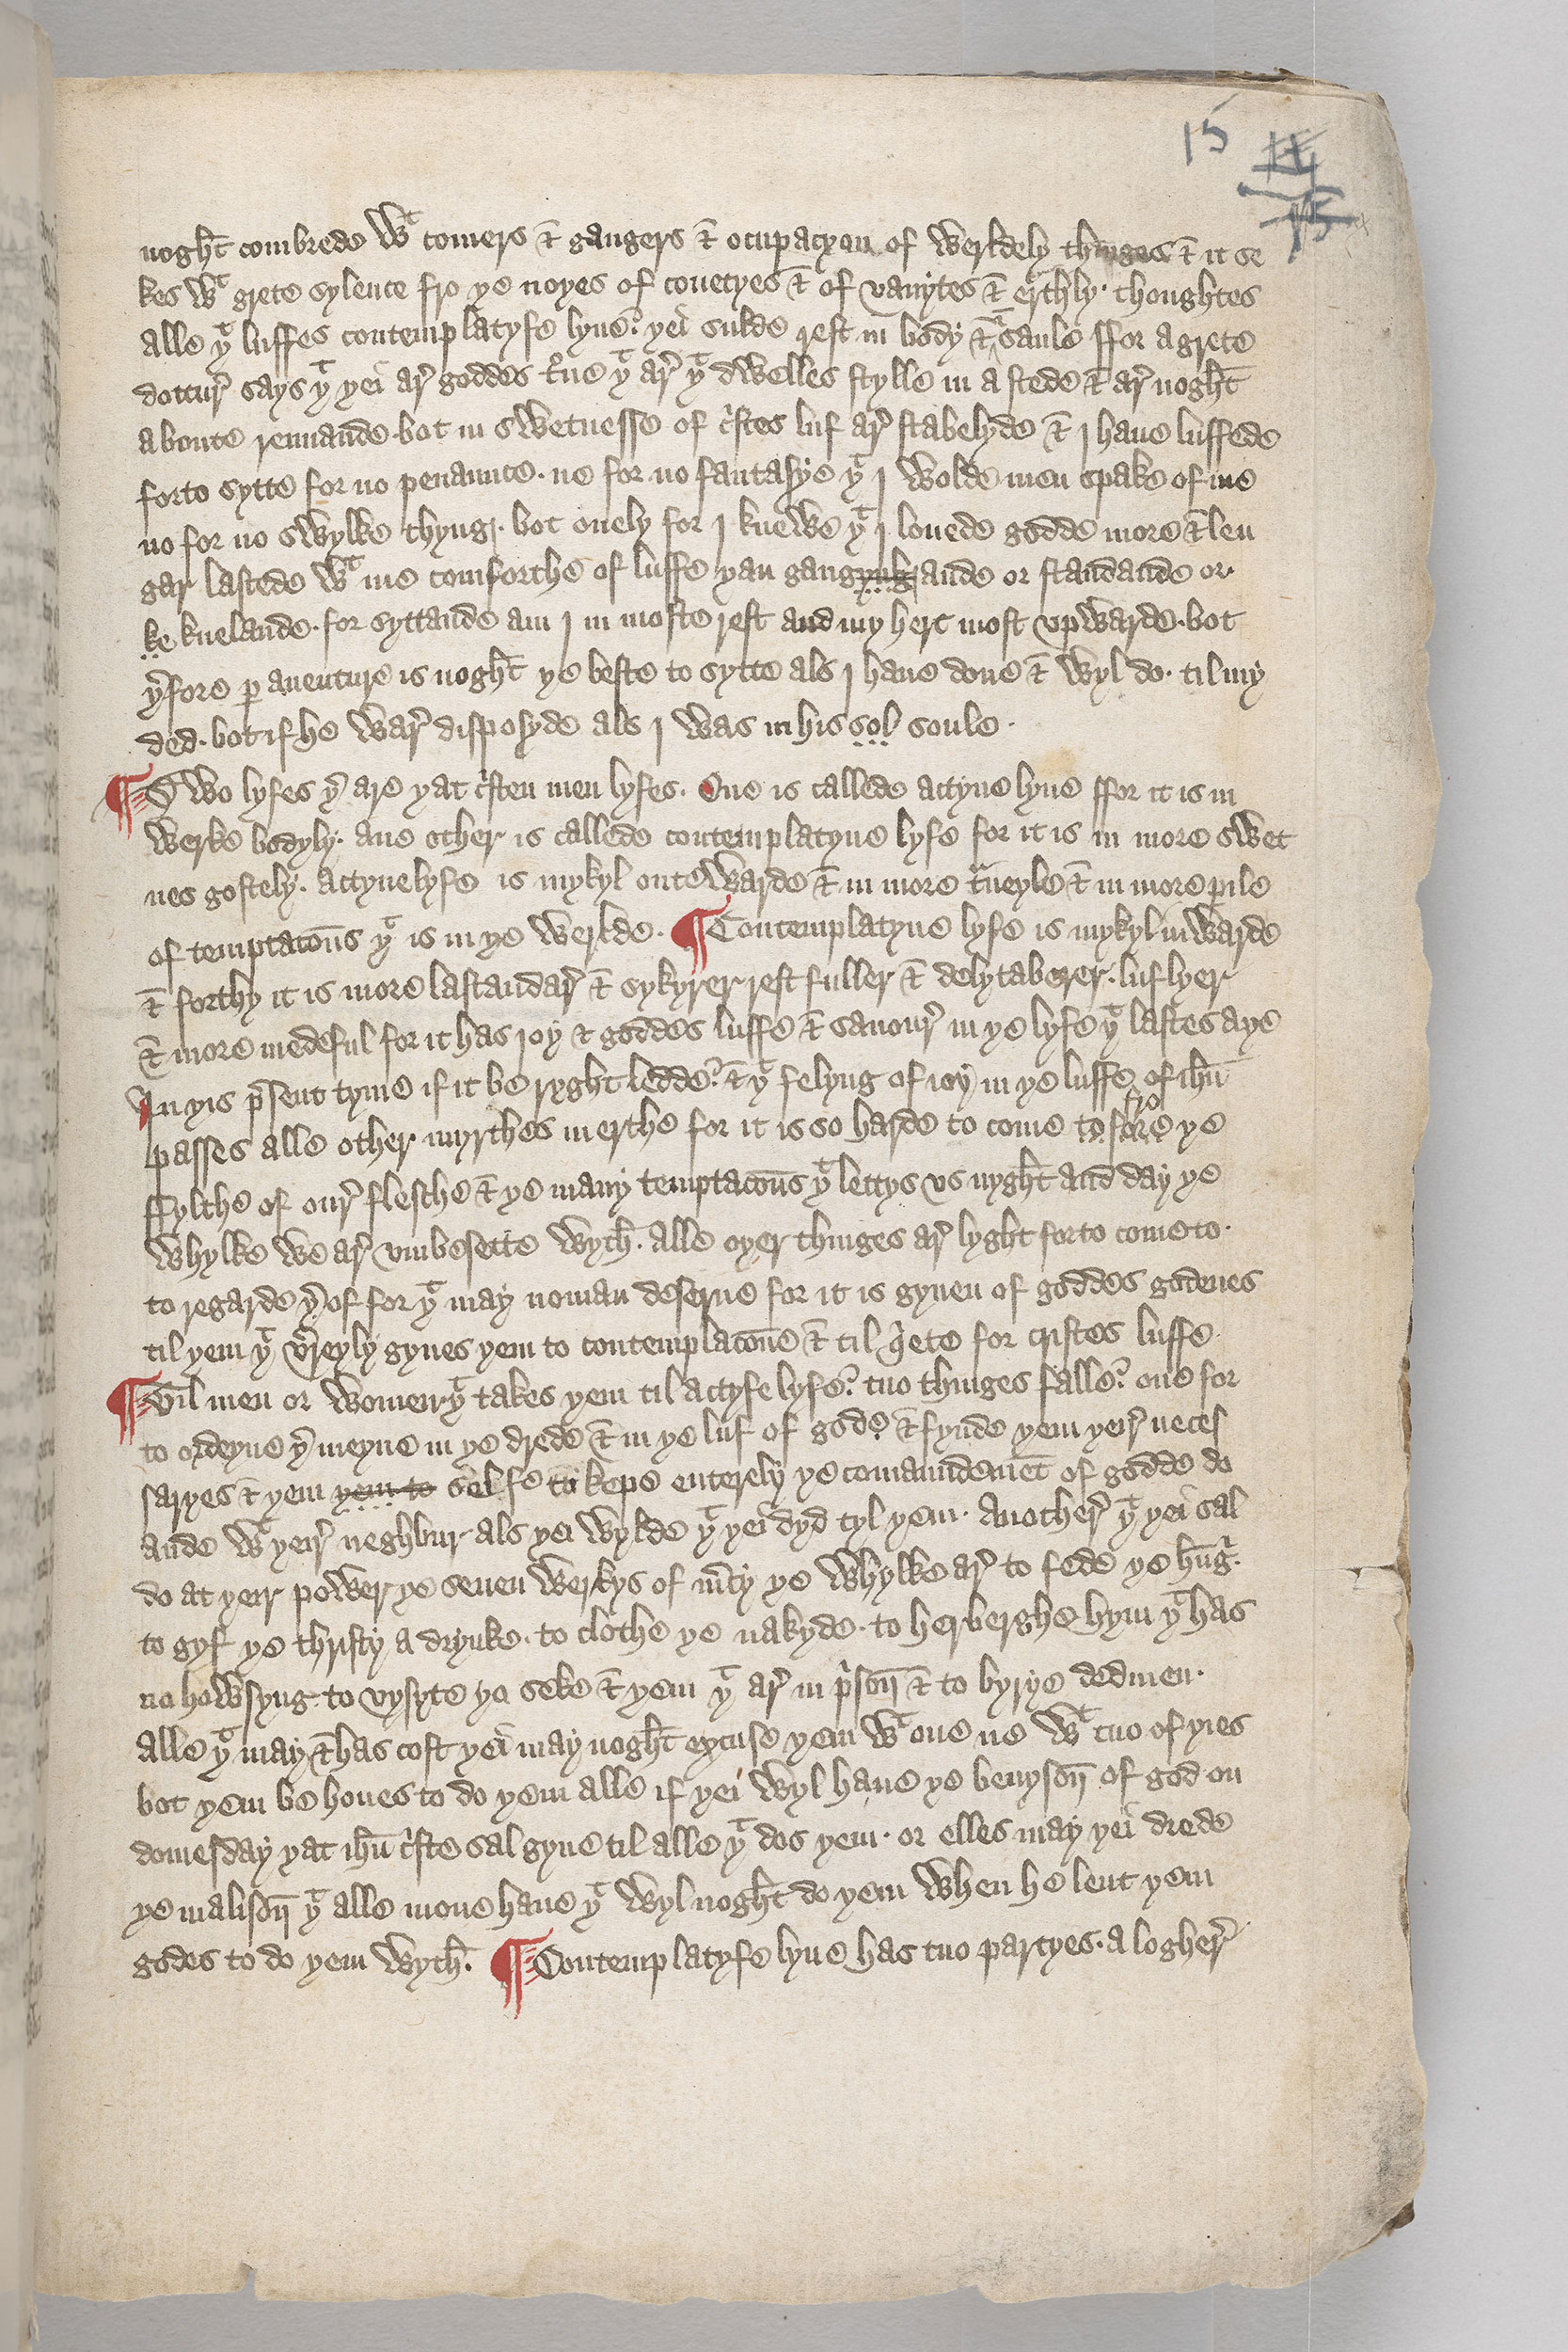 15 14
15
noght combrede wt comers & gangers & ocupacyon of werldely thinges & it se
kes wt grete sylence fro ye noyes of couetyes & of vanytes & erthly thoghtes
alle yt luffes contemplatyfe lyue. yei sulde rest in body & saule ffor a grete
doctur says yt yei ar goddes trone yt ar yt dwelles stylle in a stede & ar noght
aboute rennande. bot in swetnesse of cristes luf ar stabelyde & I haue luffede
forto sytte for no penaunce. ne for no fantasye yt I wolde men spake of me
no for no swylke thyng. bot onely for I knewe yt I louede godde more & len
gar lastede wt me comforthe of luffe yan gangyngande or standande or
ke knelande. for syttande am I in moste rest and my hert most vpwarde. bot
yerfore per auenture is noght ye beste to sytte als I haue done & wyl do. til my
ded. bot if he war disposyde als I was in his sol soule.
¶ Two lyfes yer are yat cristen men lyfes. One is callede actyue lyue ffor it is in
werke bodyly. ane other is callede contemplatyue lyfe for it is in more swet
nes gostely. actyue lyfe is mykyl outewarde & in more traueyle & in more perile
of temptacouns yt is in ye werlde. ¶ Contemplatyue lyfe is mykyl inwarde
& forthy it is more lastandar & sykyrer restfuller & delytaberer. luflyer
& more medeful for it has ioy & goddes luffe & sauour in ye lyfe yt lastes aye
In yis present tyme if it be ryght ledde. & yt felyng of ioy in ye luffe of ihu
passes alle other myrthes in erthe for it is so harde to come to fore fro ye
ffylthe of our flesche & ye many temptacouns yt lettys vs nyght and day ye
whylke we ar vmbesette wyth. alle oyer thinges ar lyght forto come to.
to regarde yerof for yt may noman deserue for it is gyuen of goddes godenes
til yem yt verreyly gyues yem to contemplacoune & til qiete for cristes luffe.
¶ Til men or women yt takes yem til actyfe lyfe. tuo thinges falle. one for
to ordeyne yer meyne in ye drede & in ye luf of gode & fynde yem yeir neces
saryes & yem yem to selfe to kepe enterely ye comaundement of godde do
ande wt yeir neghbur als yei wylde yt yei dyd tyl yem. Another yt yei sal
do at yeir power ye seuen werkys of mercy ye whylke ar to fede ye hungr.
to gyf ye thristy a drynke. to clothe ye nakyde. to herberghe hym yt has
no howsyng. to vysyte ye seke & yem yt ar in prison & to byrye dedmen.
alle yt may & has cost yei may noght excuse yem wt one ne wt tuo of yies
bot yem behoues to do yem alle if yei wyl haue ye benyson of god on
domesday yat ihu criste sal gyue til alle yt dos yem. or elles may yei drede
ye malison yt alle mone haue yt wyl noght do yem when he lent yem
godes to do yem wyth. ¶ Contemplatyfe lyue has tuo partyes. a logher